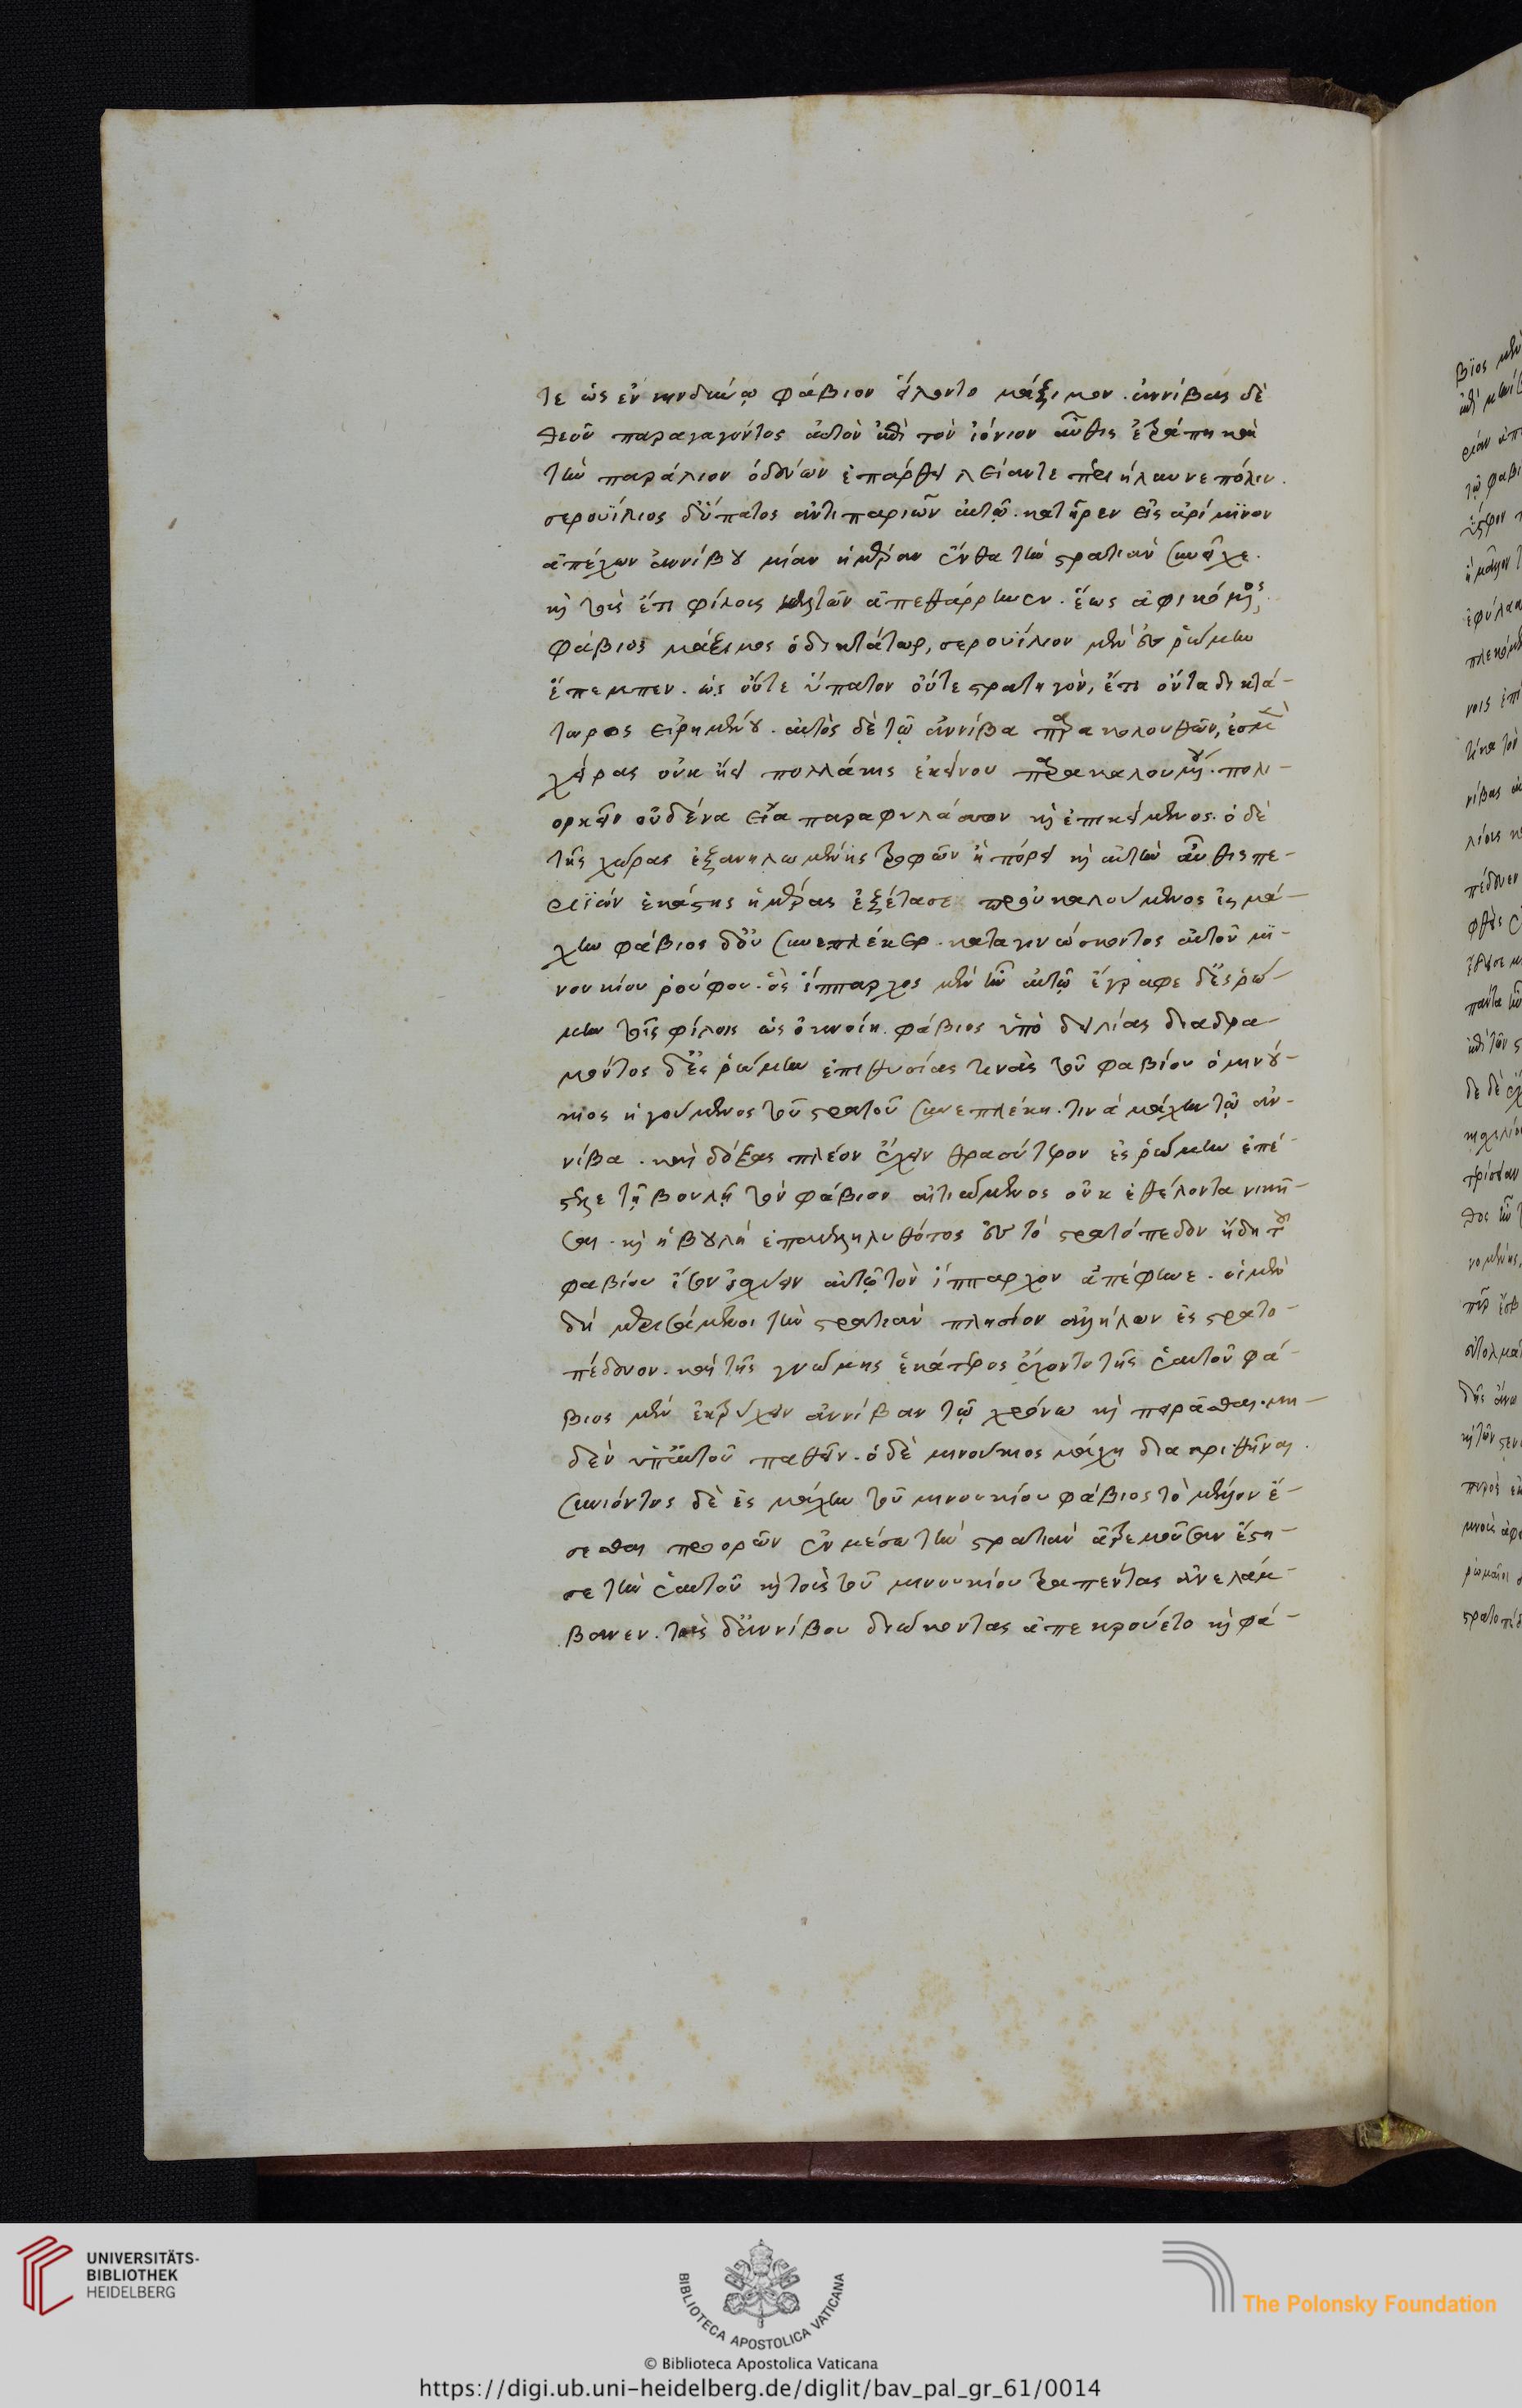 τε ὡς ἐν κινδύνῳ φάβιον εἵλοντο μάξιμον. ἀννίβας δὲ
θεοῦ παραγαγόντος αὐτὸν ἐπὶ τὸν ἰόνιον αὖθις ἐτράπη καὶ
τὴν παράλιον ὁδεύων ἐπόρθει λείαν τε περιήλαυνε πολλὴν.
σερουΐλιος δ' ὕπατος ἀντιπαριὼν αὐτῷ. κατῆρεν εἰς ἀρίμινον
ἀπέχων ἀννίβου μίαν ἡμέραν ἔνθα τὴν στρατιὰν συνεῖχε.
καὶ τοὺς ἔτι φίλους κελτῶν ἀπεθάρρυνεν. ἕως ἀφικόμενος
φάβιος μάξιμος ὁ δικτάτωρ, σερουΐλιον μὲν ἐς ῥώμην
ἔπεμπεν. ὡς οὔτε ὕπατον οὔτε στρατηγὸν, ἔτι ὄντα δικτά-
τωρος εἰρημένου. αὐτὸς δὲ τῷ ἀννίβα παρακολουθῶν, ἐς μὲν
χεῖρας οὐκ ἤει πολλάκις ἐκείνου παρακαλουμένου. πολι-
ορκεῖν οὐδένα εἴα παραφυλάσσων καὶ ἐπικείμενος. ὁ δὲ
τῆς χώρας ἐξανηλωμένης τροφῶν ἠπόρει καὶ αὐτὴν αὖθις πε-
ριϊὼν ἑκάστης ἡμέρας ἐξέτασσε προὐκαλούμενος ἐς μά-
χην φάβιος δ' οὐ συνεπλέκετο. καταγινώσκοντος αὐτοῦ μι-
νουκίου ῥούφου. ὃς ἵππαρχος μὲν ἦν αὐτῷ ἔγραφε δ' ἐς ῥώ-
μην τοῖς φίλοις ὡς ὀκνοίη. φάβιος ὑπὸ δειλίας διαδρα-
μόντος δ' ἐς ῥώμην ἐπὶ θυσίας τινὰς τοῦ φαβίου ὁ μινού-
κιος ἡγούμενος τοῦ στρατοῦ συνεπλέκη. τινὰ μάχην τῷ ἀν-
νίβα. καὶ δόξας πλέον ἔχειν θρασύτερον ἐς ῥώμην ἐπέ-
στελλε τῇ βουλῇ τὸν φάβιον αἰτιώμενος οὐκ ἐθέλοντα νικῆ-
σαι. καὶ ἡ βουλὴ ἐπανεληλυθότος ἐς τὸ στρατόπεδον ἤδη τοῦ
φαβίου ἴσον ἰσχύειν αὐτῷ τὸν ἵππαρχον ἀπέφηνε. οἱ μὲν
δὴ μερισάμενοι τὴν στρατιὰν πλησίον ἀλλήλων ἐστρατο-
πέδευον. καὶ τῆς γνώμης ἑκάτερος εἴχοντο τῆς ἑαυτοῦ φά-
βιος μὲν ἐκτρύχειν ἀννίβαν τῷ χρόνῳ καὶ πειρᾶσθαι. μη-
δὲν ὑπ' αὐτοῦ παθεῖν. ὁ δὲ μινούκιος μάχῃ διακριθῆναι.
συνιόντος δὲ ἐς μάχην τοῦ μινουκίου φάβιος τὸ μέλλον ἔ-
σεσθαι προορῶν ἐν μέσῳ τὴν στρατιὰν ἀτρεμοῦσαν ἔστη-
σε τὴν ἑαυτοῦ καὶ τοὺς τοῦ μινουκίου τραπέντας ἀνελάμ-
βανεν. τοὺς δ' ἀννίβου διώκοντας ἀπεκρούετο καὶ φά-
UNIVERSITÄTS-
BIBLIOTHEK
HEIDELBERG
BIBLIOTECA APOSTOLICA VATICANA
The Polonsky Foundation
© Biblioteca Apostolica Vaticana
https://digi.ub.uni-heidelberg.de/diglit/bav_pal_gr_61/0014